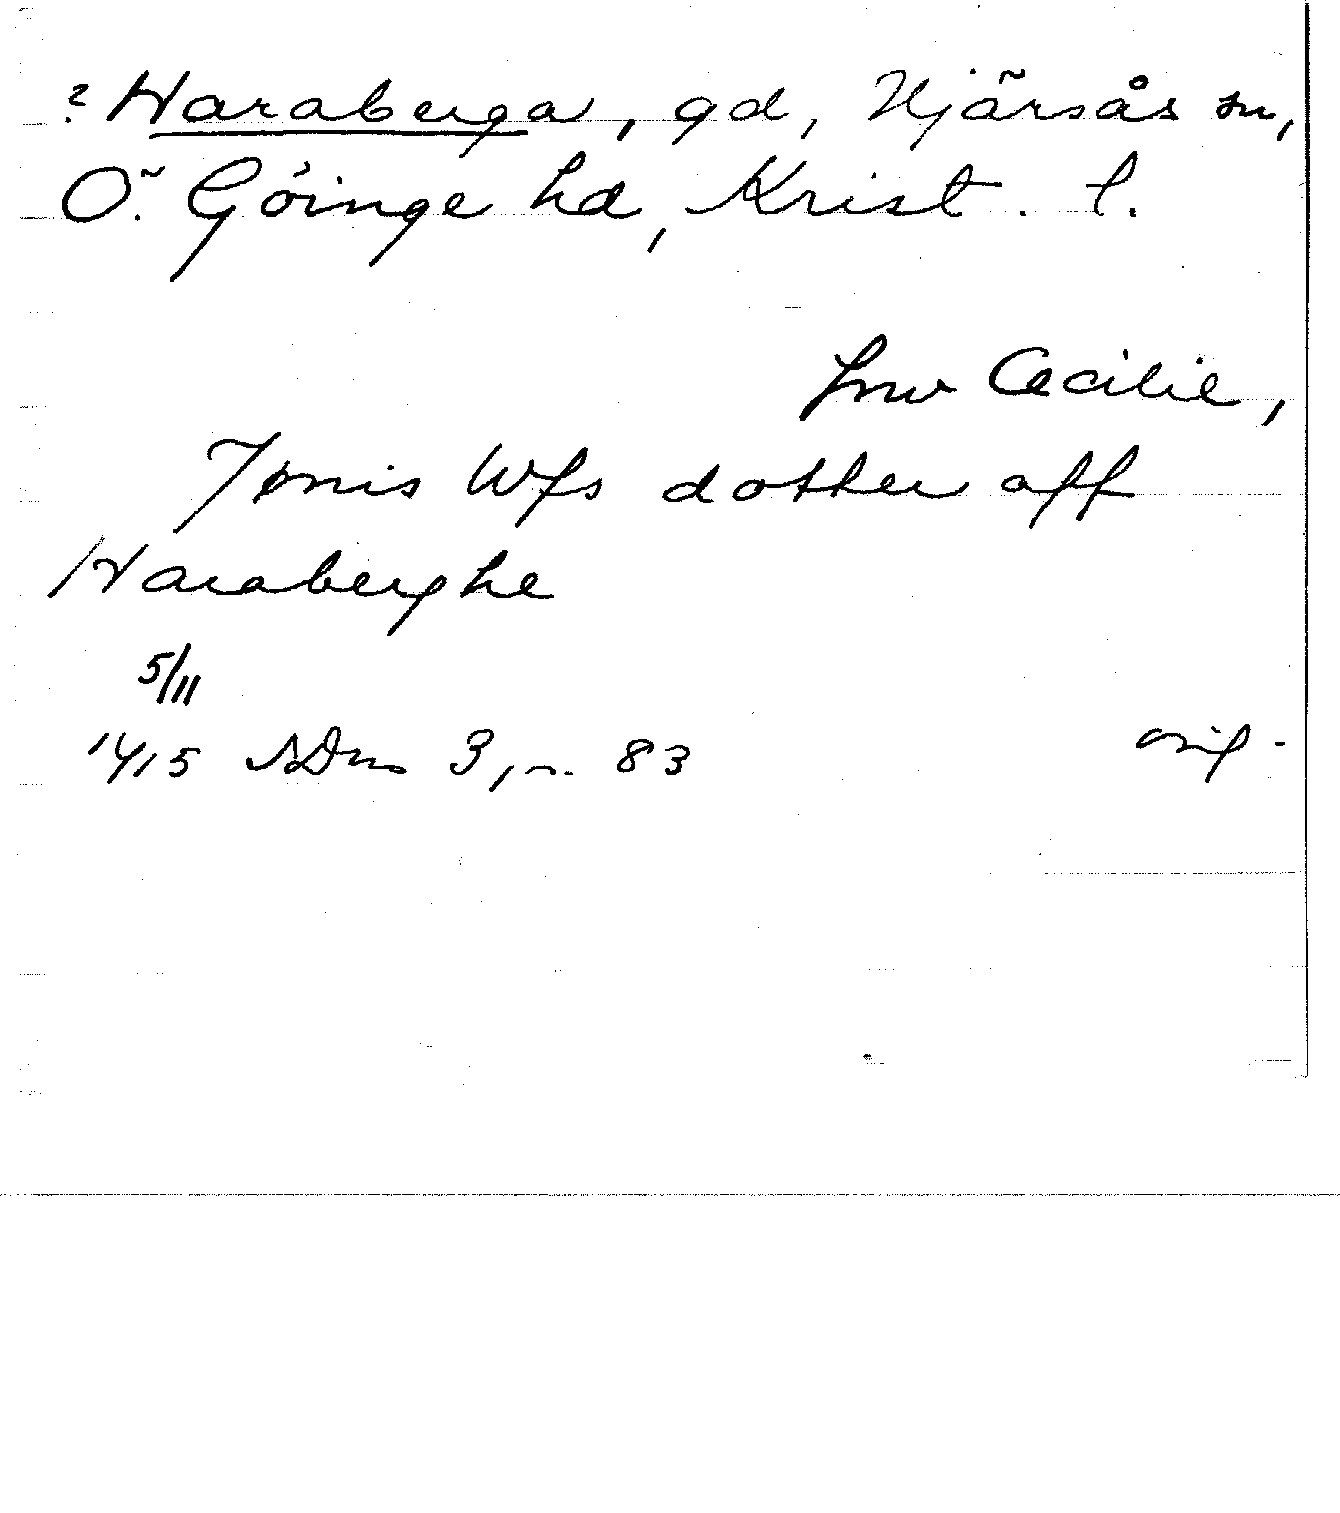 ? Haraberga, gd, Hjärsås sn,
Ö. Göinge hd, Krist. l.
frw Cecilie,
Jønis Wfs dotther aff
Haraberghe
5/11
1415 SDns 3, s. 83
orig.